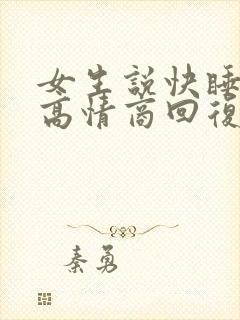 女生說快睡
高情商回復
秦勇